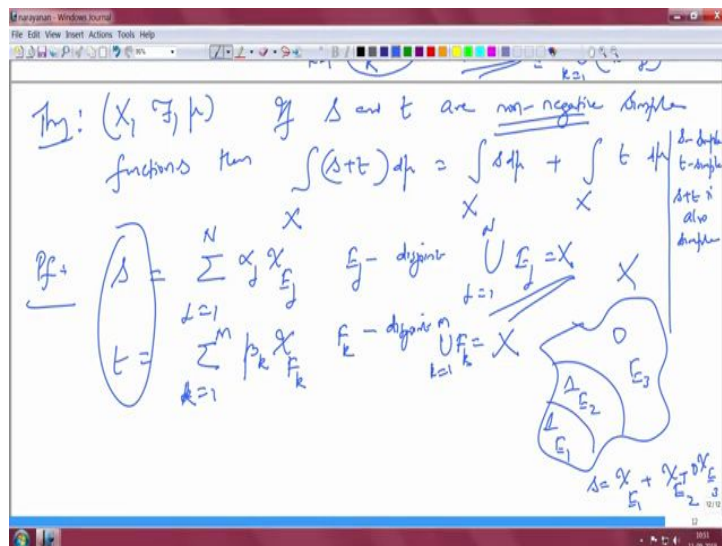 narayanan - Windows Journal
File Edit View Insert Actions Tools Help
Thm: (X, ℱ, μ) If s and t are non-negative simple
functions then ∫_X (s+t) dμ = ∫_X s dμ + ∫_X t dμ
s - simple
t - simple
s+t is
also
simple
Pf:
s = ∑_{j=1}^{N} α_j χ_{E_j} E_j - disjoint ⋃_{j=1}^{N} E_j = X
t = ∑_{k=1}^{M} β_k χ_{F_k} F_k - disjoint ⋃_{k=1}^{m} F_k = X
X
0
E_3
1
E_2
1
E_1
s = χ_{E_1} + χ_{E_2} + 0 χ_{E_3}
12/12
12
10:51